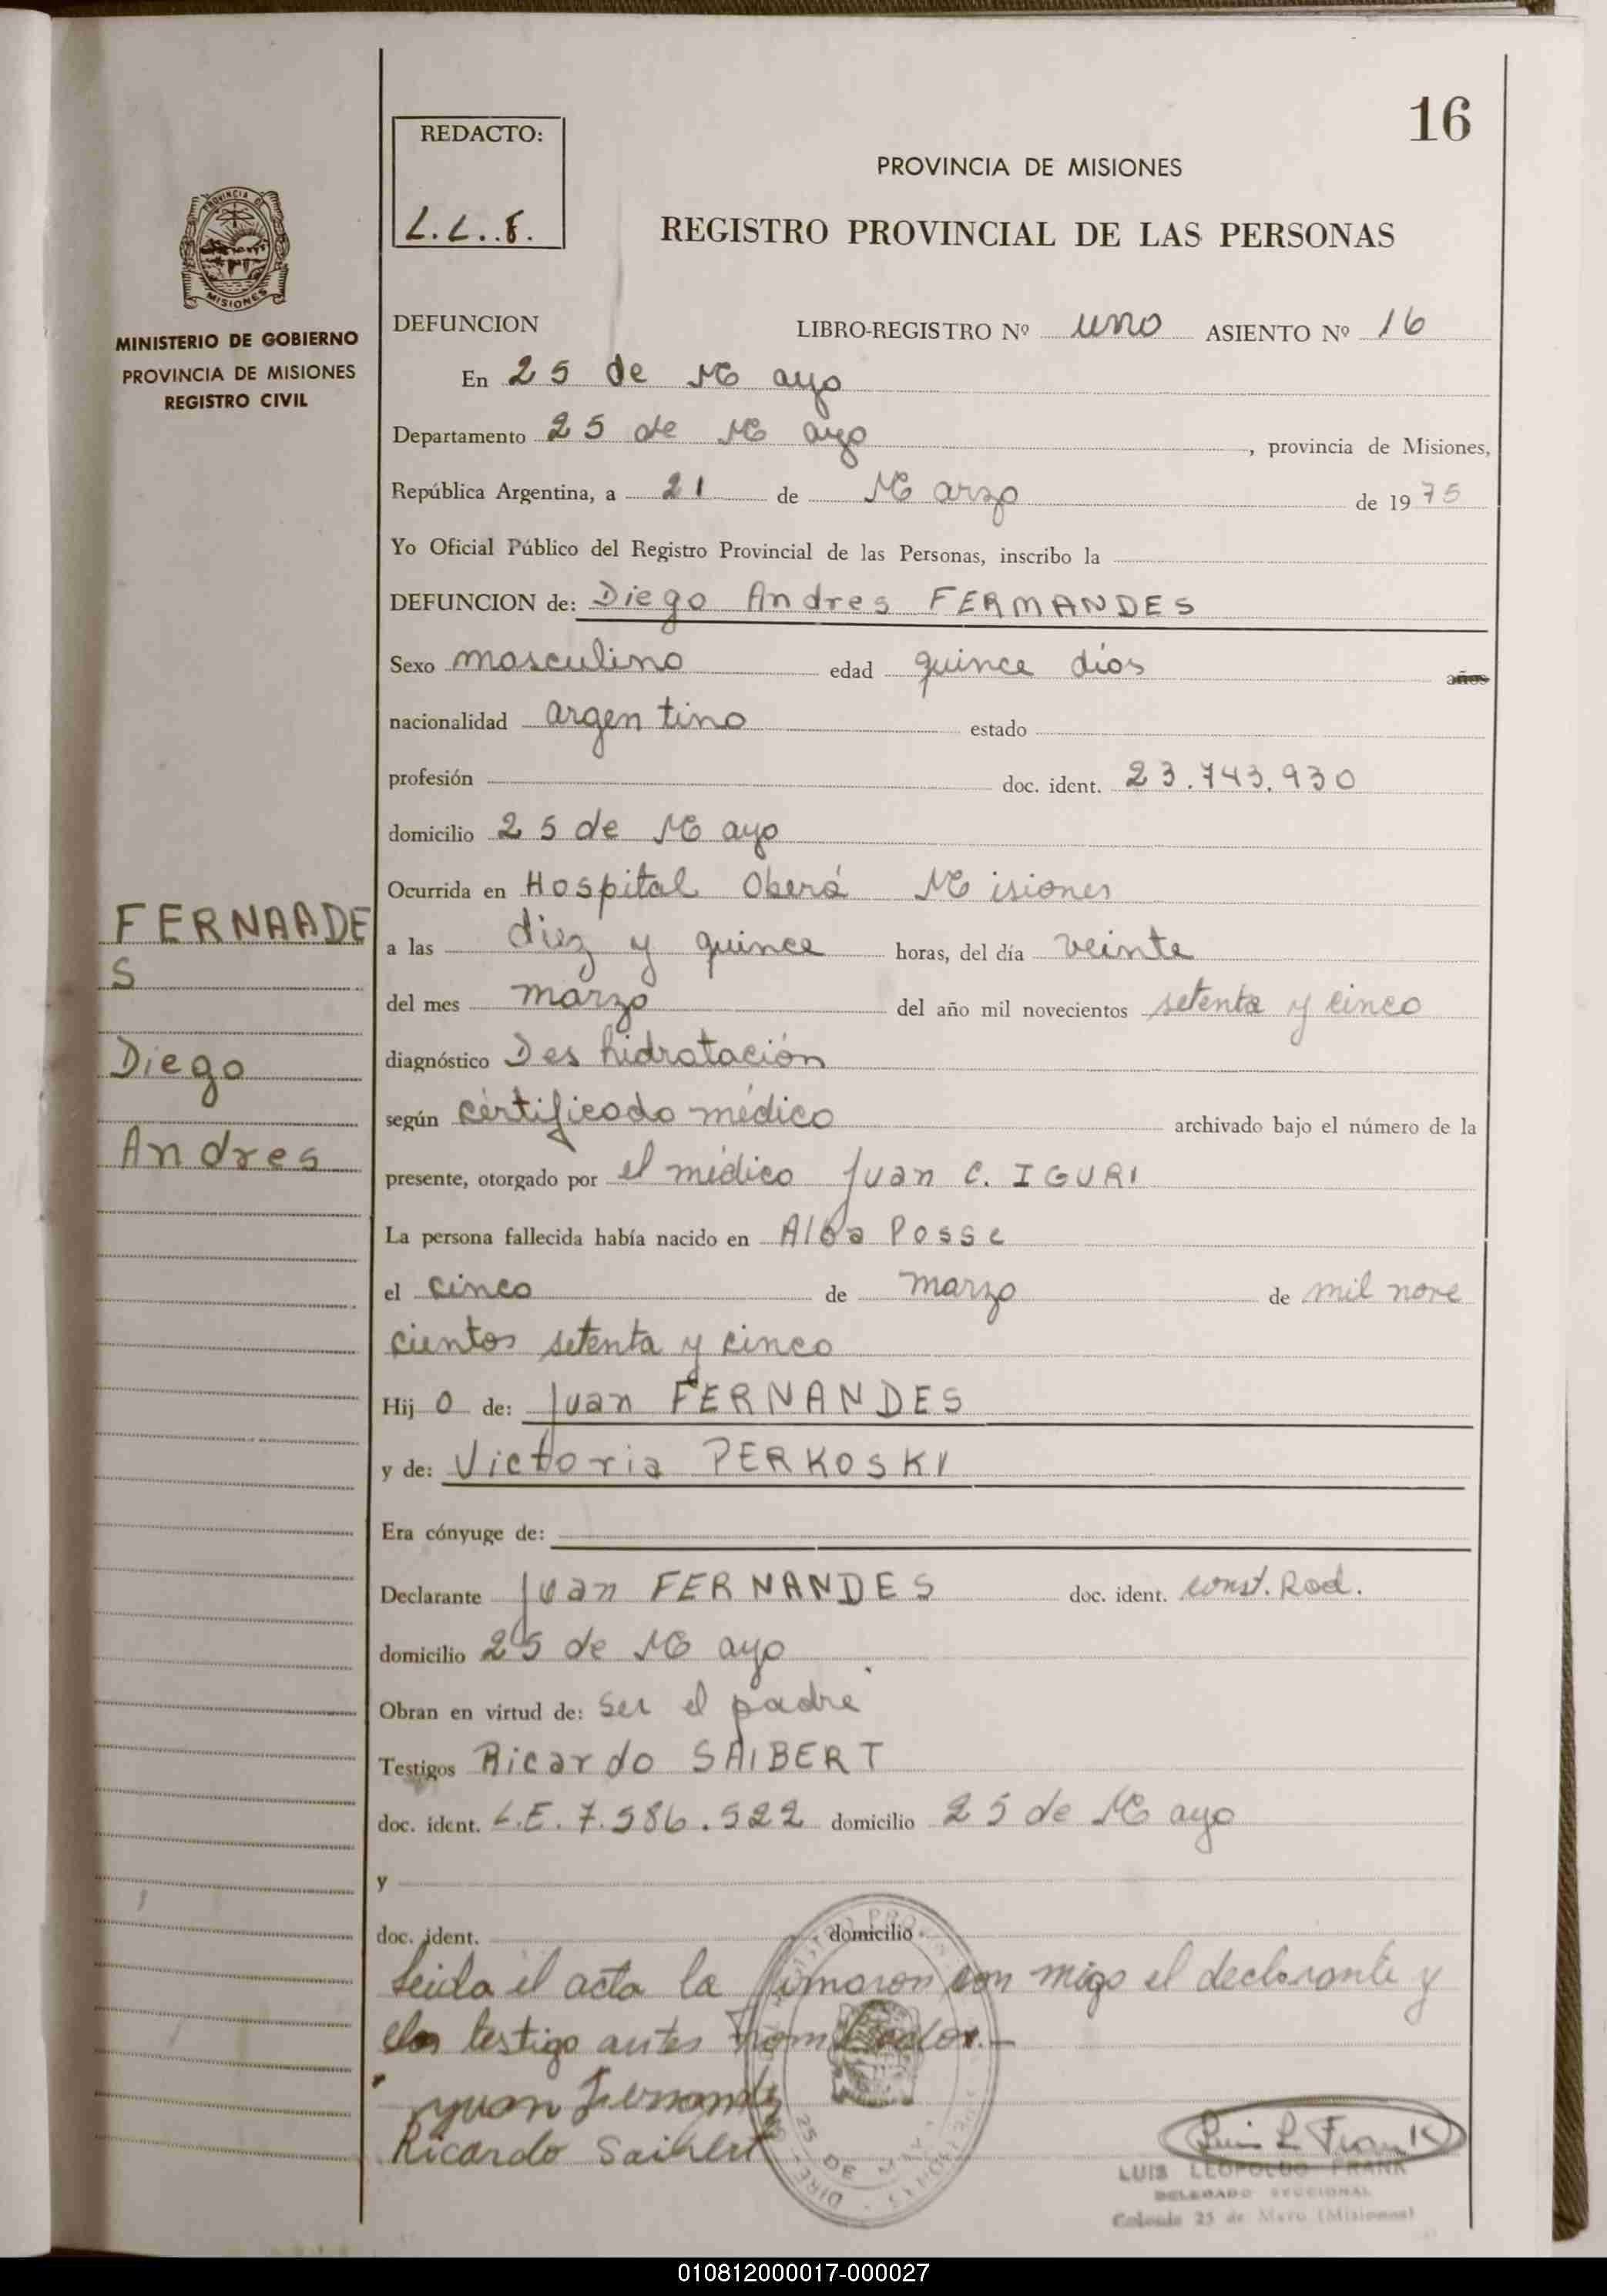 16
REDACTO:
L.L.F.
PROVINCIA DE MISIONES
REGISTRO PROVINCIAL DE LAS PERSONAS
PROVINCIA DE
MISIONES
MINISTERIO DE GOBIERNO
PROVINCIA DE MISIONES
REGISTRO CIVIL
DEFUNCION LIBRO-REGISTRO Nº uno ASIENTO Nº 16
En 25 de Mayo
Departamento 25 de Mayo, provincia de Misiones,
República Argentina, a 21 de Marzo de 1975
Yo Oficial Público del Registro Provincial de las Personas, inscribo la
DEFUNCION de: Diego Andres FERMANDES
Sexo masculino edad quince días años
nacionalidad argentino estado
profesión doc. ident. 23.743.930
domicilio 25 de Mayo
Ocurrida en Hospital Oberá Misiones
FERNAADE
S
Diego
Andres
a las diez y quince horas, del día veinte
del mes marzo del año mil novecientos setenta y cinco
diagnóstico Deshidratación
según certificado médico archivado bajo el número de la
presente, otorgado por el médico Juan C. IGURI
La persona fallecida había nacido en Alba Posse
el cinco de marzo de mil nove
cientos setenta y cinco
Hijo de: Juan FERNANDES
y de: Victoria PERKOSKI
Era cónyuge de:
Declarante Juan FERNANDES doc. ident. const. Rad.
domicilio 25 de Mayo
Obran en virtud de: Ser el padre
Testigos Ricardo SAIBERT
doc. ident. L.E. 7.586.522 domicilio 25 de Mayo
y
doc. ident. domicilio
Leida el acta la firmaron con migo el declarante y
testigo antes nombrados.-
Juan Fernandes
Ricardo Saibert
25 DE MAYO
Luis L Frank
LUIS LEOPOLDO FRANK
DELEGADO SECCIONAL
Colonia 25 de Mayo (Misiones)
010812000017-000027